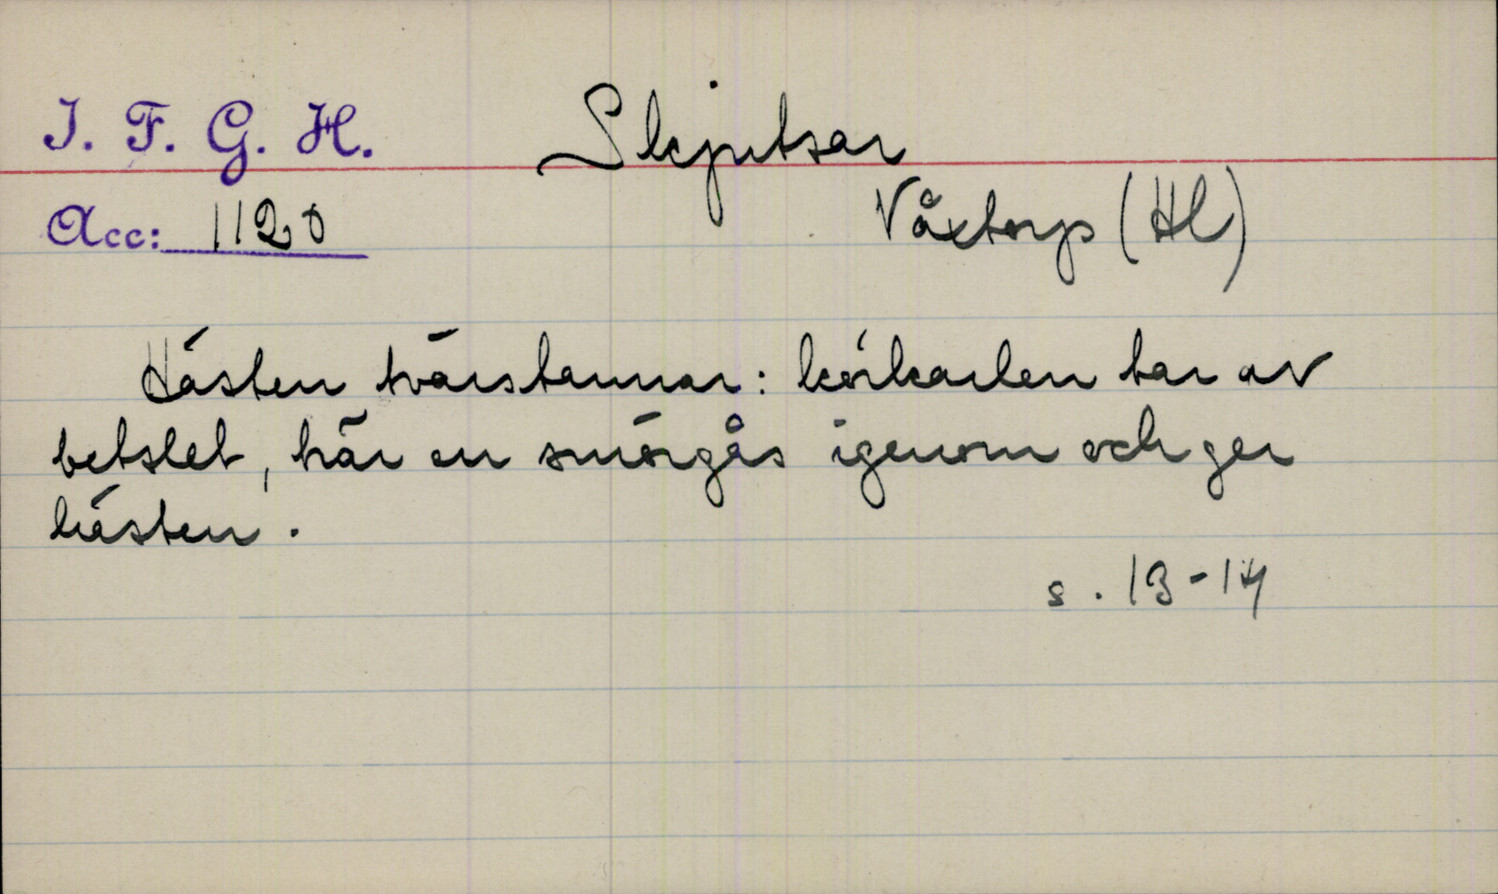 I. F. G. H.
Skjutsar
Acc: 1120
Våxtorp (Hl)
Hästen tvärstannar: körkarlen tar av
betslet, trär en smörgås igenom och ger
hästen.
s. 13-14